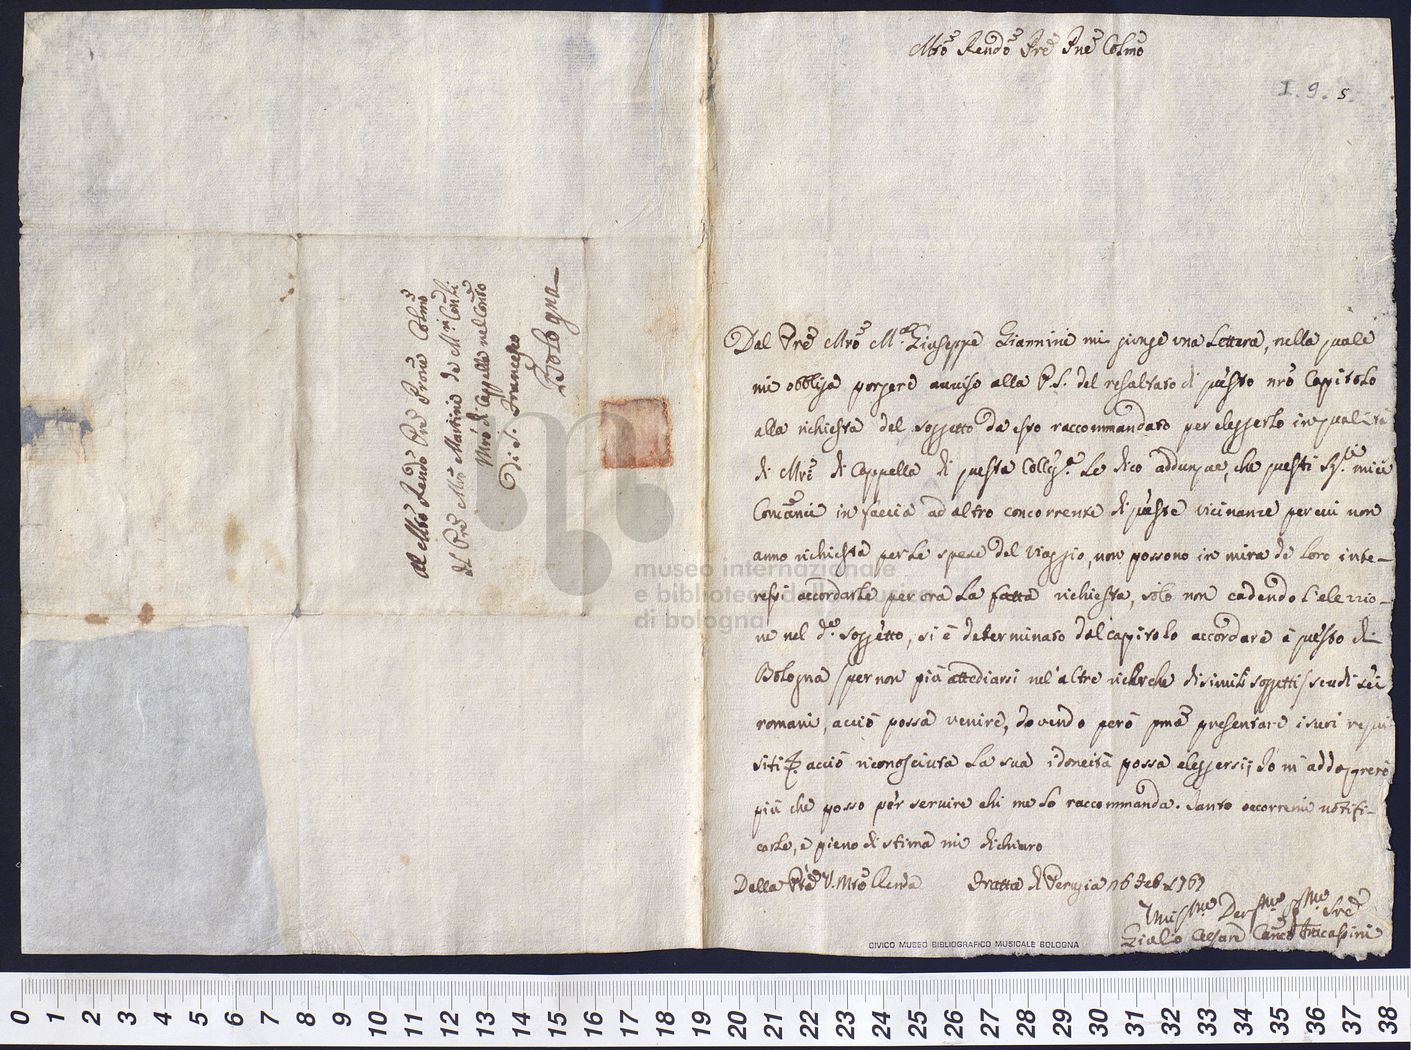 Al Mto Rendo Pre Prone Colmo
Il Pre Mro Martini de Mri Conli
Mro di Cappella nel Conto
di S. Francesco
Bologna
Mto Rendo Pre Pne Colmo
I. 9. 5.
Dal Pre Mro Mo Giuseppe Giannini mi giunge una Lettera, nella quale
mi obbliga porgere avviso alla P.S. del resaltato di questo nro Capitolo
alla richiesta del soggetto da esso raccommandato per eleggerlo in qualità
di Mro di Cappella di questa Collga. Le dico addunque, che questi Sig.ri miei
Concanci in faccia ad altro concorrenze di queste vicinanze per cui non
anno richiesta per le spese del viaggio, non possono in mira de loro inte-
ressi accordarle per ora la fatta richiesta, solo non cadendo l'elezzio-
ne nel do soggetto, si è determinato dal capitolo accordare à questo di
Bologna /per non più attediarsi nel'altre richerche di simili soggetti/ scudi sei
romani, acciò possa venire, dovendo però pma presentare i suoi requi
siti, acciò riconosciuta la sua idoneità possa eleggersi; Io m'addoprerò
più che posso per servire chi me lo raccommanda. Tanto occorremi notifi-
carle, e pieno di stima mi dichiaro
Della Ptà V. Mto Renda Fratta di Perugia 16 Feb 1767
Giulio Cesare Canco Fracassini
museo internazionale
e biblioteca della musica
di bologna
CIVICO MUSEO BIBLIOGRAFICO MUSICALE BOLOGNA
0 1 2 3 4 5 6 7 8 9 10 11 12 13 14 15 16 17 18 19 20 21 22 23 24 25 26 27 28 29 30 31 32 33 34 35 36 37 38